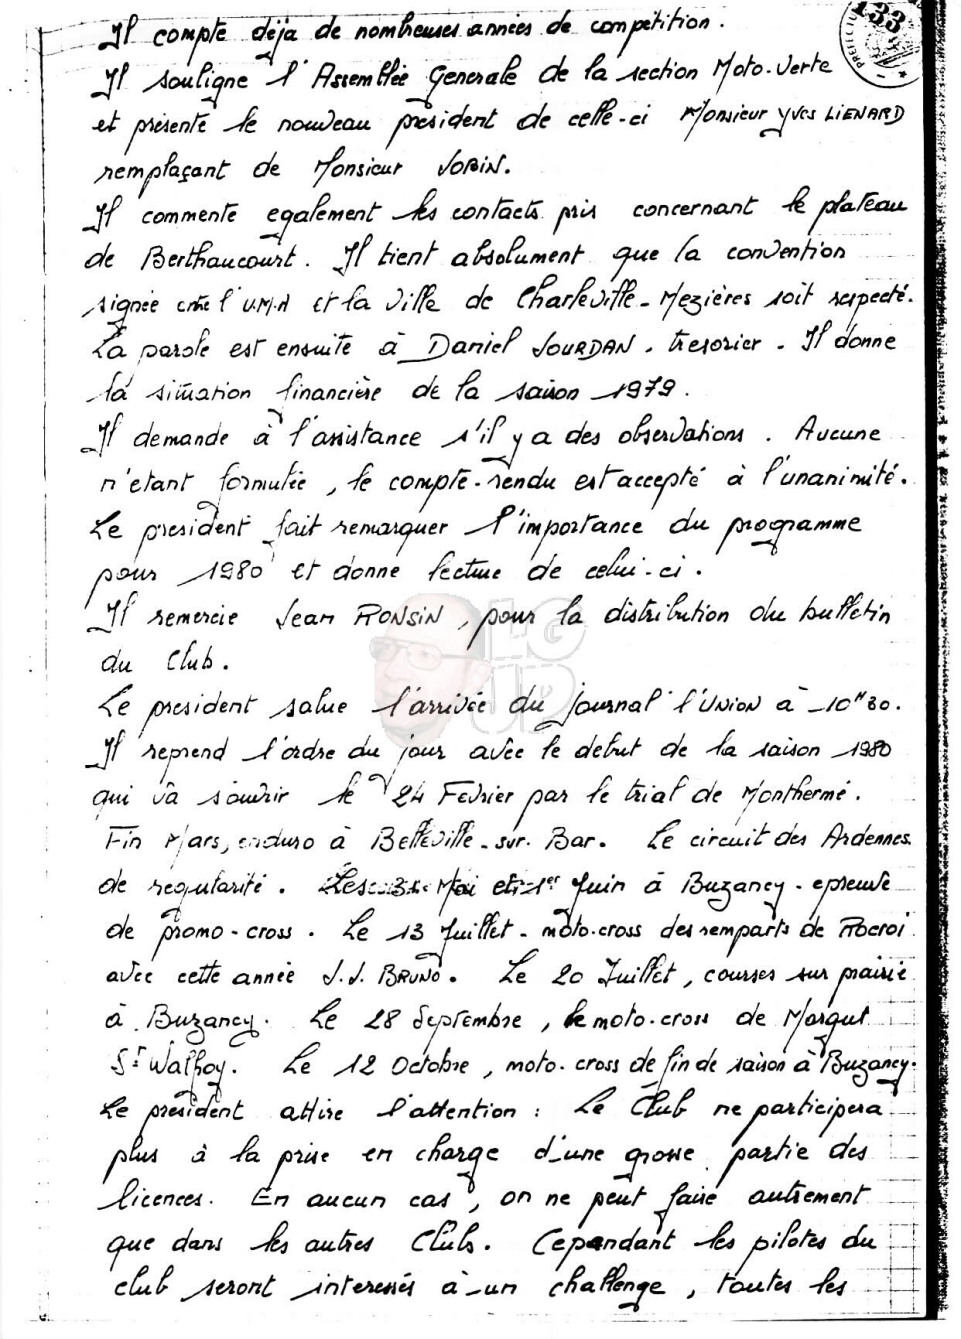 Il compte déjà de nombreuses années de compétition.
133
PREFECTU
Il souligne l'Assemblée Generale de la section Moto-Verte
et présente le nouveau président de celle-ci Monsieur Yves LIENARD
remplaçant de Monsieur JOBIN.
Il commente egalement les contacts pris concernant le plateau
de Berthaucourt. Il tient absolument que la convention
signée entre l'U.M.A et la Ville de Charleville-Mezières soit respecté.
La parole est ensuite à Daniel JOURDAN. tresorier. Il donne
la situation financière de la saison 1979.
Il demande à l'assistance s'il y a des observations. Aucune
n'étant formulée, le compte-rendu est accepté à l'unanimité.
Le president fait remarquer l'importance du programme
pour 1980 et donne lecture de celui-ci.
Il remercie Jean RONSIN, pour la distribution du bulletin
du Club.
LG
UP
Le president salue l'arrivée du journal l'UNION à 10H30.
Il reprend l'ordre du jour avec le debut de la saison 1980
qui va s'ouvrir le 24 Fevrier par le trial de Monthermé.
Fin Mars, enduro à Belleville-sur-Bar. Le circuit des Ardennes
de regularité. Les 31 Mai et 1er Juin à Buzancy - epreuve
de promo-cross. Le 13 Juillet - moto-cross des remparts de Rocroi
avec cette année J.J. BRUNO. Le 20 Juillet, courses sur prairie
à Buzancy. Le 28 Septembre, le moto-cross de Margut
St Walfroy. Le 12 Octobre, moto-cross de fin de saison à Buzancy.
Le président attire l'attention : Le Club ne participera
plus à la prise en charge d'une grosse partie des
licences. En aucun cas, on ne peut faire autrement
que dans les autres Clubs. Cependant les pilotes du
club seront interessés à un challenge, toutes les